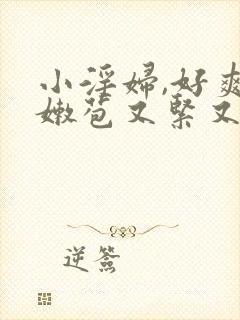 小淫婦,好爽
嫩苞又緊又
逆簽